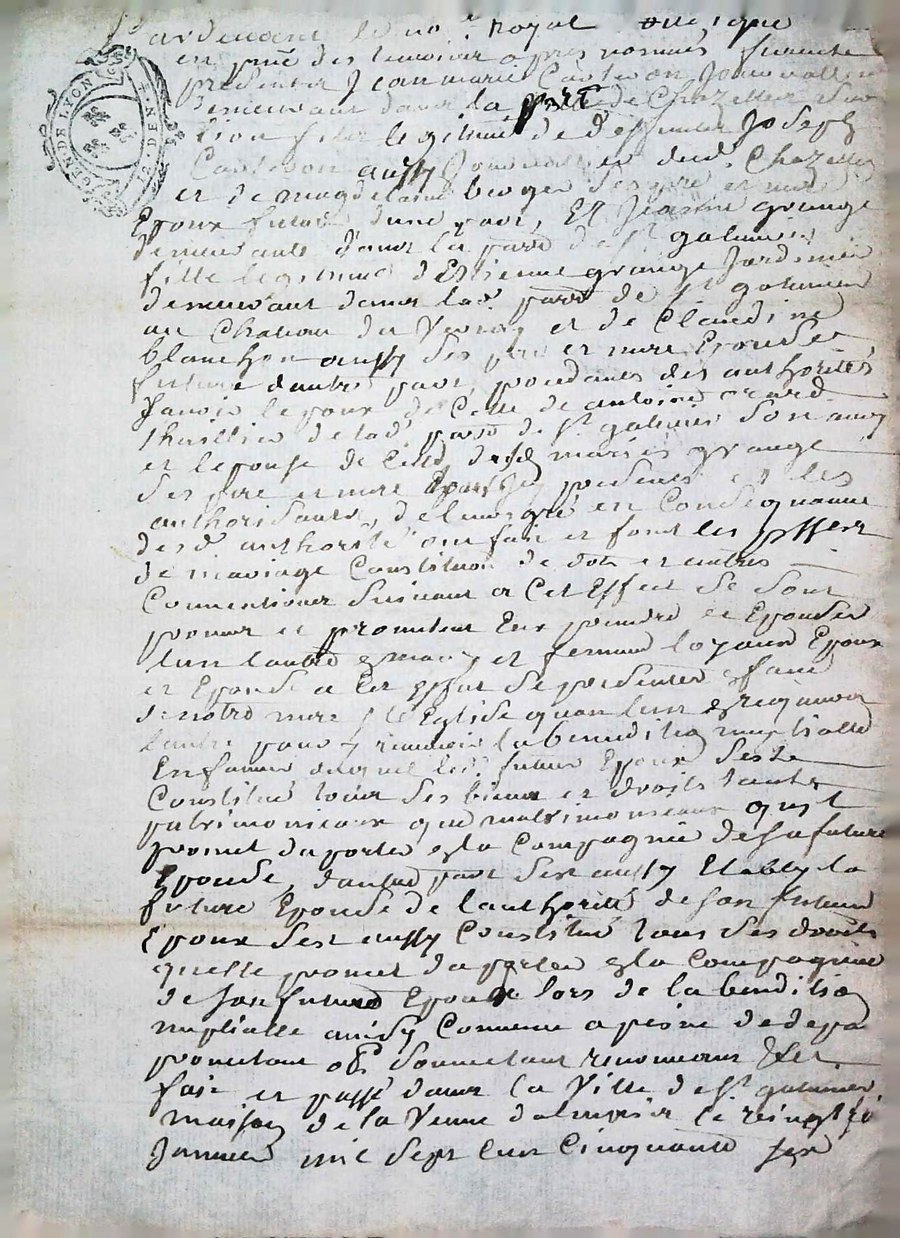 GEN DE LYON
2 DEN
Pardevant le no.re Royal
en pnce des temoins apres nommés furent
presents Jean marie Journallier
demeurant dans la parr de Chazelles sur
Lion fils legitime de deffunts Joseph
aussy Journallier dud. Chazelles
et de magdelaine berger ses pere et mere
Epoux futur d'une part, Et Jeanne grange
demeurante dans la parr de st galmier
fille legitime d'Estienne grange Jardinier
demeurant dans lad. parr de st galmier
au Chateau du et de Claudine
blanchon aussy ses pere et mere Epouse
future d'autre part, procedants des authorités
Savoir lepoux de Celle de antoine
de lad. parr de st galmier son amy
et lepouse de Celle desd. mariés grange
ses pere et mere presents et les
authorisants, de leur gré en Consequance
desd. authorités ont fait et font les
de mariage Constitution de dots et autres
Conventions suivant a Cet Effect se sont
promis et promettent Eux prendre et Epouser
lun lautre a mary et femme loyaux Epoux
et Epouse a Cet effet se presenter a face
de notre mere ste Eglise quan lun a requerra
lautre pour y recevoir la benediction nuptialle
En faveur duquel led. futur Epoux sest
Constitué tous ses biens et droits tant
patrimoniaux que matrimoniaux quil
promet daporter a la Compagnie de sa future
Epouse, dautre part sest aussy Etably la
future Epouse de l'authorité de son futur
Epoux sest aussy Constitué tous ses droits
quelle promet daporter a la Compagnie
de son futur Epoux lors de la benediction
nuptialle ainsy Convenu a peine de
promettant obl. soumettant renonceant
fait et passé dans la Ville de st galmier
maison de la Veuve le vingt
Janvier mil sept cent Cinquante six